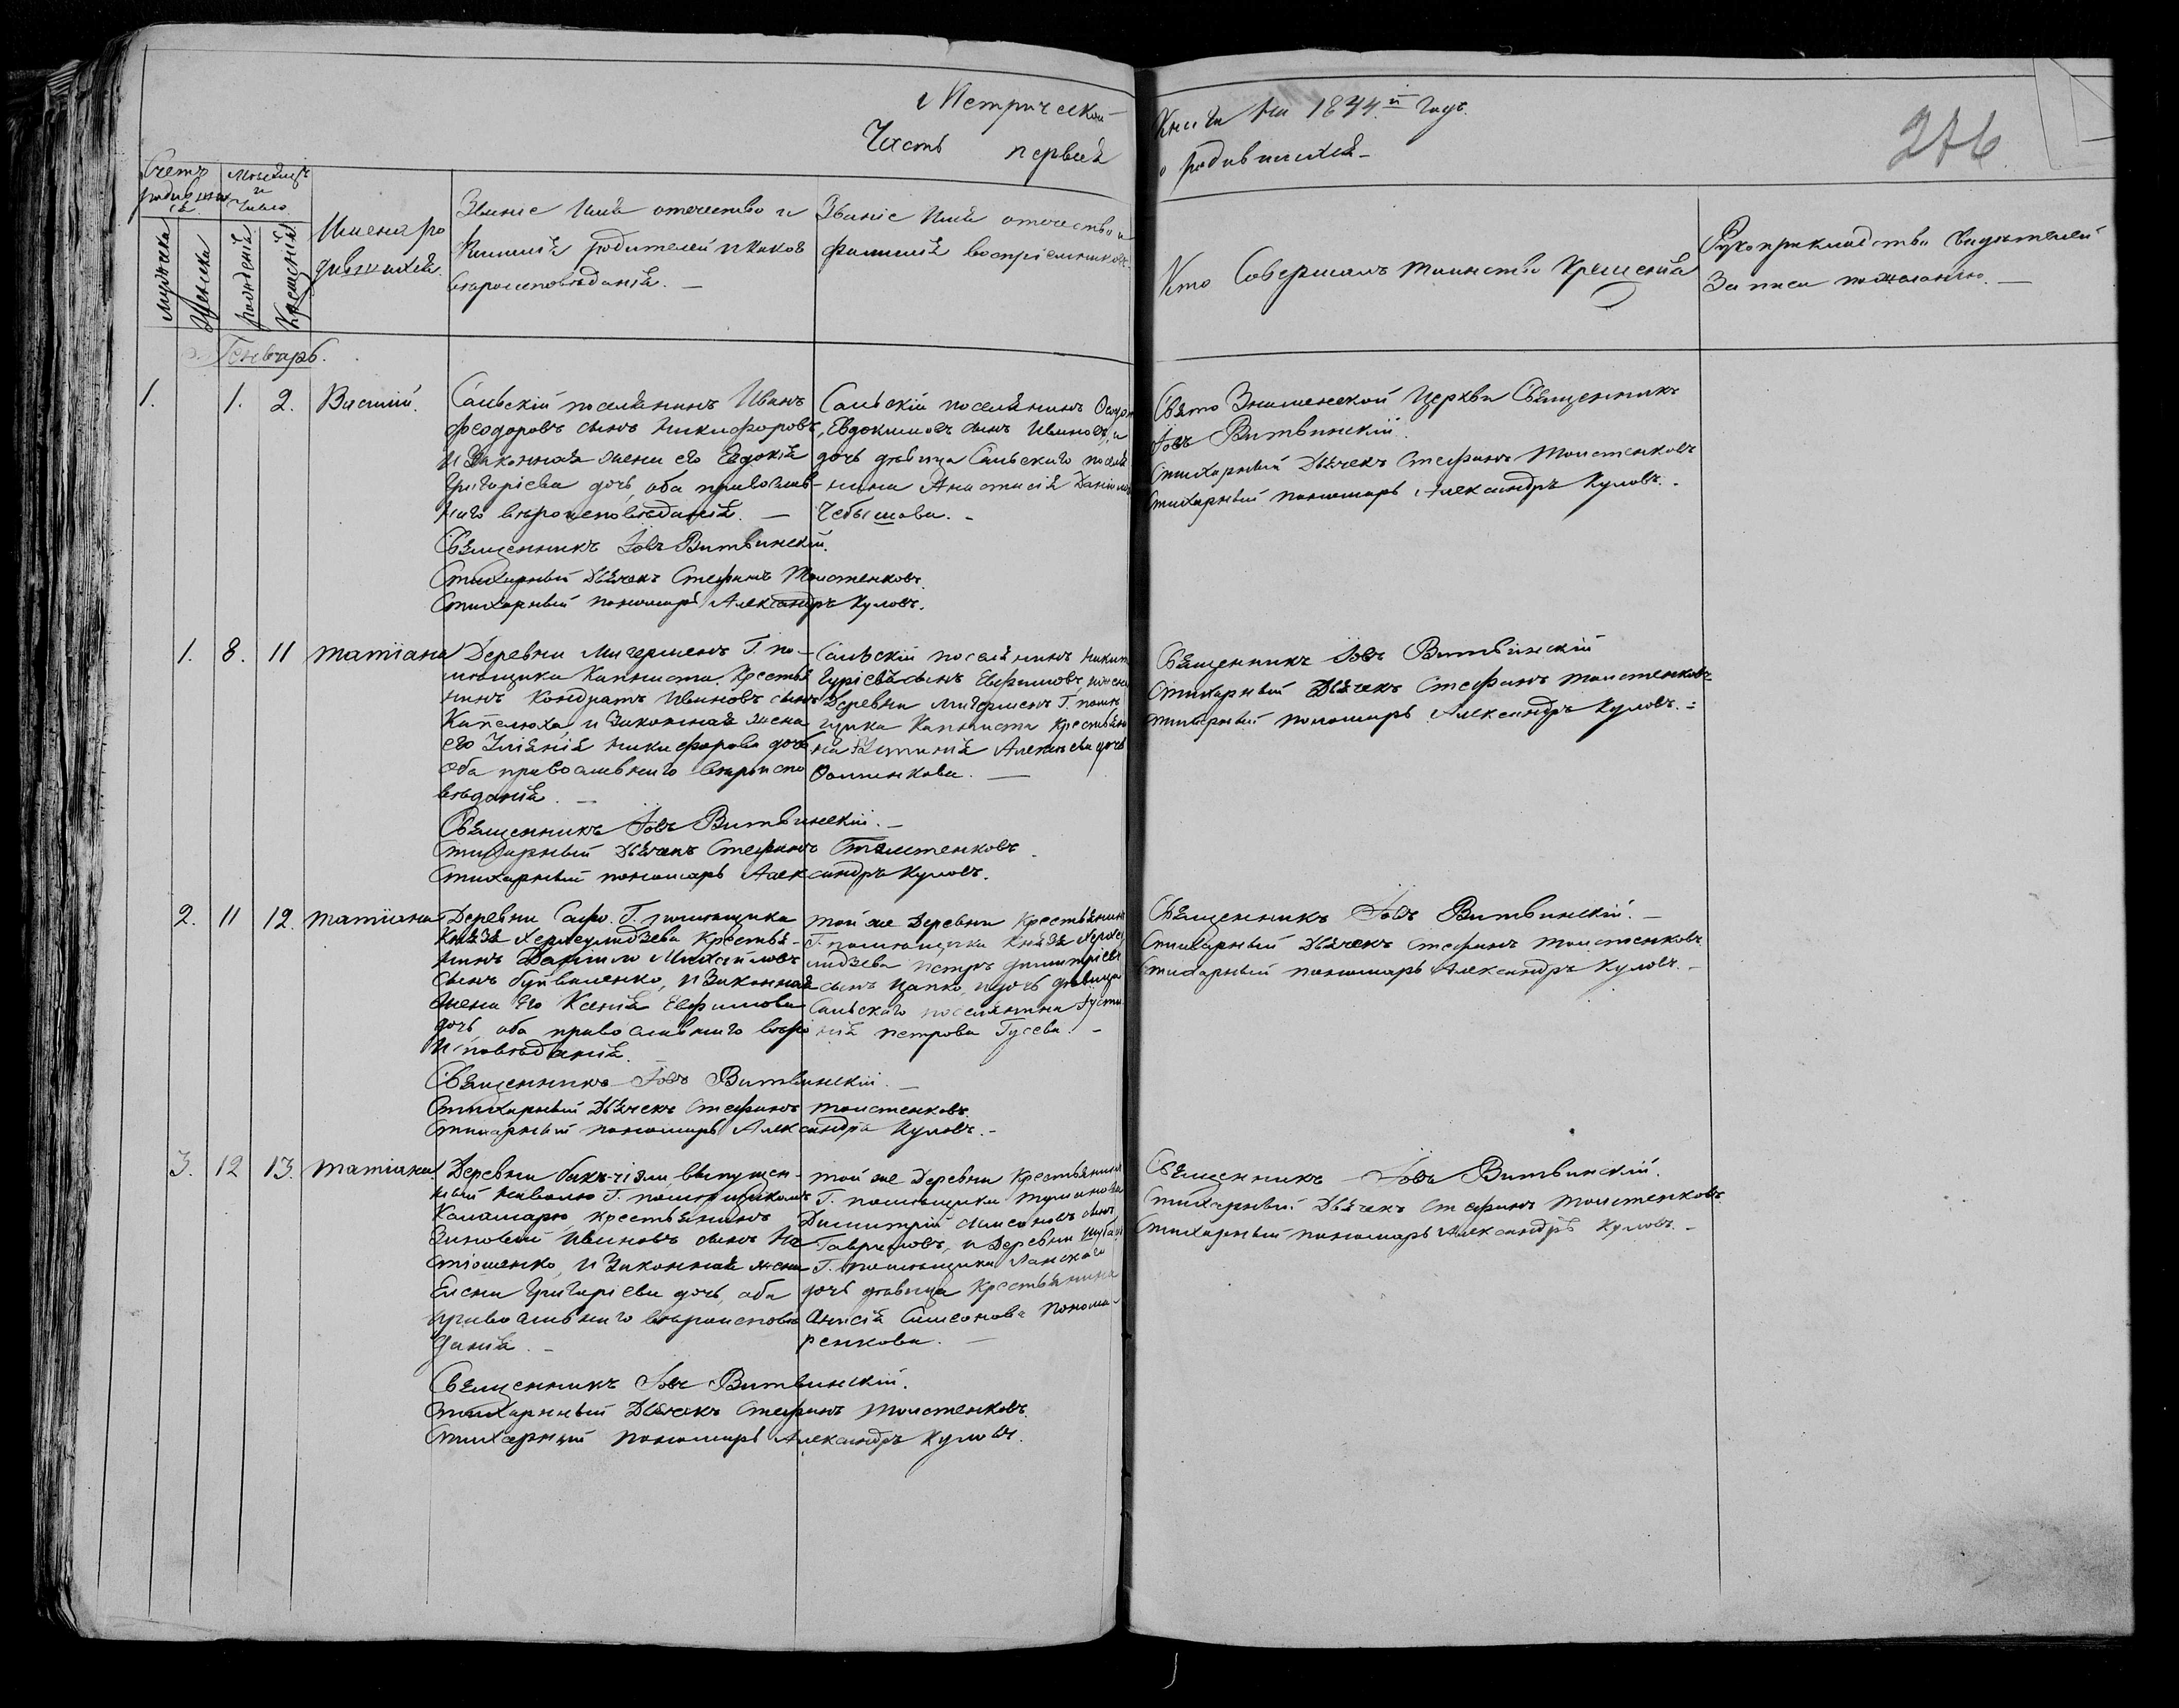 Метрической
Часть первая
Книги на 1844.й годъ.
о родившихся
276
Счетъ родившихся
Мѣсяцъ и число
мужеска
женска
рожденія
Крещенія
Имена родившихся.
Званіе Имя отечество и
Фамилія родителей и какого
вѣроисповѣданія. —
Званіе Имя отечество и
фамилія воспріемниковъ
Кто Совершалъ таинство Крещенія
Рукоприкладство Свидѣтелей
Записи по желанію. —
Генварь.
1. 1. 2. Василій.
Сальскій поселянинъ Иванъ
Феодоровъ сынъ Никифоровъ,
и Законная жена его Евдокія
Григоріева дочь, оба православ-
наго вѣроисповѣданія. —
Священникъ Іовъ Витвинскій.
Стихарный Дьячекъ Стефанъ Толстенковъ.
Стихарный пономарь Александръ Куловъ.
Сальскій поселянинъ
Евдокимовъ сынъ Ивановъ, и
дочь дѣвица Сальскаго поселя
нина Анастасія
Чебышова. -
Свято Знаменской Церкви Священникъ
Іовъ Витвинскій.
Стихарный Дьячекъ Стефанъ Толстенковъ
Стихарный пономарь Александръ Куловъ. -
1. 8. 11 Татіана
Деревни Г. по-
мѣщика Капниста Крестья
нинъ Кондратъ Ивановъ сынъ
Капелюха, и Законная жена
его Уліянія Никифорова дочь
Оба православнаго вѣроиспо
вѣданія. —
Священникъ Іовъ Витвинскій. —
Стихарный Дьячекъ Стефанъ Толстенковъ.
Стихарный пономарь Александръ Куловъ.
Сальскій поселянинъ Никит
Гуріевъ сынъ Ефимовъ,
Деревни Г. помѣ
щика Капниста Крестьяни
на Устинія Алексѣева дочь
—
Священникъ Іовъ Витвинскій
Стихарный Дьячекъ Стефанъ Толстенковъ
Стихарный пономарь Александръ Куловъ. =
2. 11 12. Татіана
Деревни Г. помѣщика
Князя Херхеулидзева Крестья-
нинъ Даніилъ Михайловъ
сынъ Буйваленко, и Законная
жена его Ксенія Ефимова
дочь, оба православнаго вѣро
исповѣданія.
Священникъ Іовъ Витвинскій. —
Стихарный Дьячекъ Стефанъ Толстенковъ.
Стихарный пономарь Александръ Куловъ. -
Той же Деревни Крестьянинъ
Г. помѣщика Князя Херхеу
лидзева Петръ Димитріевъ
сынъ Цапко, и дочь дѣвица
Сальскаго поселянина Густи
нія Петрова Гусева. -
Священникъ Іовъ Витвинскій. —
Стихарный Дьячекъ Стефанъ Толстенковъ.
Стихарный пономарь Александръ Куловъ. -
3. 12 13. Татіана
Деревни выпущен-
ный наволю Г. помѣщикомъ
Каламарою, Крестьянинъ
Зиновій Ивановъ сынъ Не
стіошенко, и Законная жена
Елена Григоріева дочь, оба
православнаго вѣроисповѣ
данія. -
Священникъ Іовъ Витвинскій.
Стихарный Дьячекъ Стефанъ Толстенковъ.
Стихарный пономарь Александръ Куловъ.
Той же Деревни Крестьянинъ
Г. помѣщика Туманова
Димитрій Симеоновъ сынъ
Гавриловъ, и Деревни
Г. помѣщика Ланскаго
дочь дѣвица Крестьянина
Анисія Симеонова Понома-
ренкова. —
Священникъ Іовъ Витвинскій.
Стихарный Дьячекъ Стефанъ Толстенковъ.
Стихарный пономарь Александръ Куловъ. -